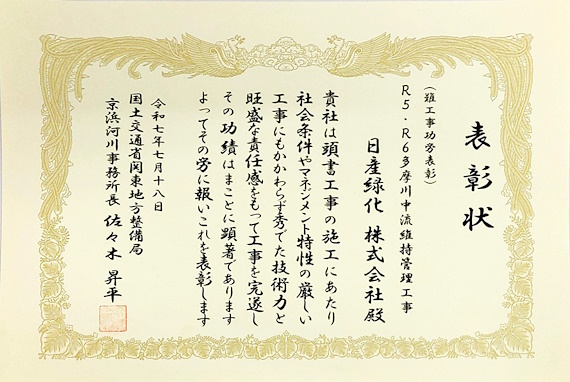 表彰状
（難工事功労表彰）
R5・R6多摩川中流維持管理工事
日産緑化 株式会社殿
貴社は頭書工事の施工にあたり
社会条件やマネジメント特性の厳しい
工事にもかかわらず秀でた技術力と
旺盛な責任感をもって工事を完遂し
その功績はまことに顕著であります
よってその労に報いこれを表彰します
令和七年七月十八日
国土交通省関東地方整備局
京浜河川事務所長 佐々木 昇平